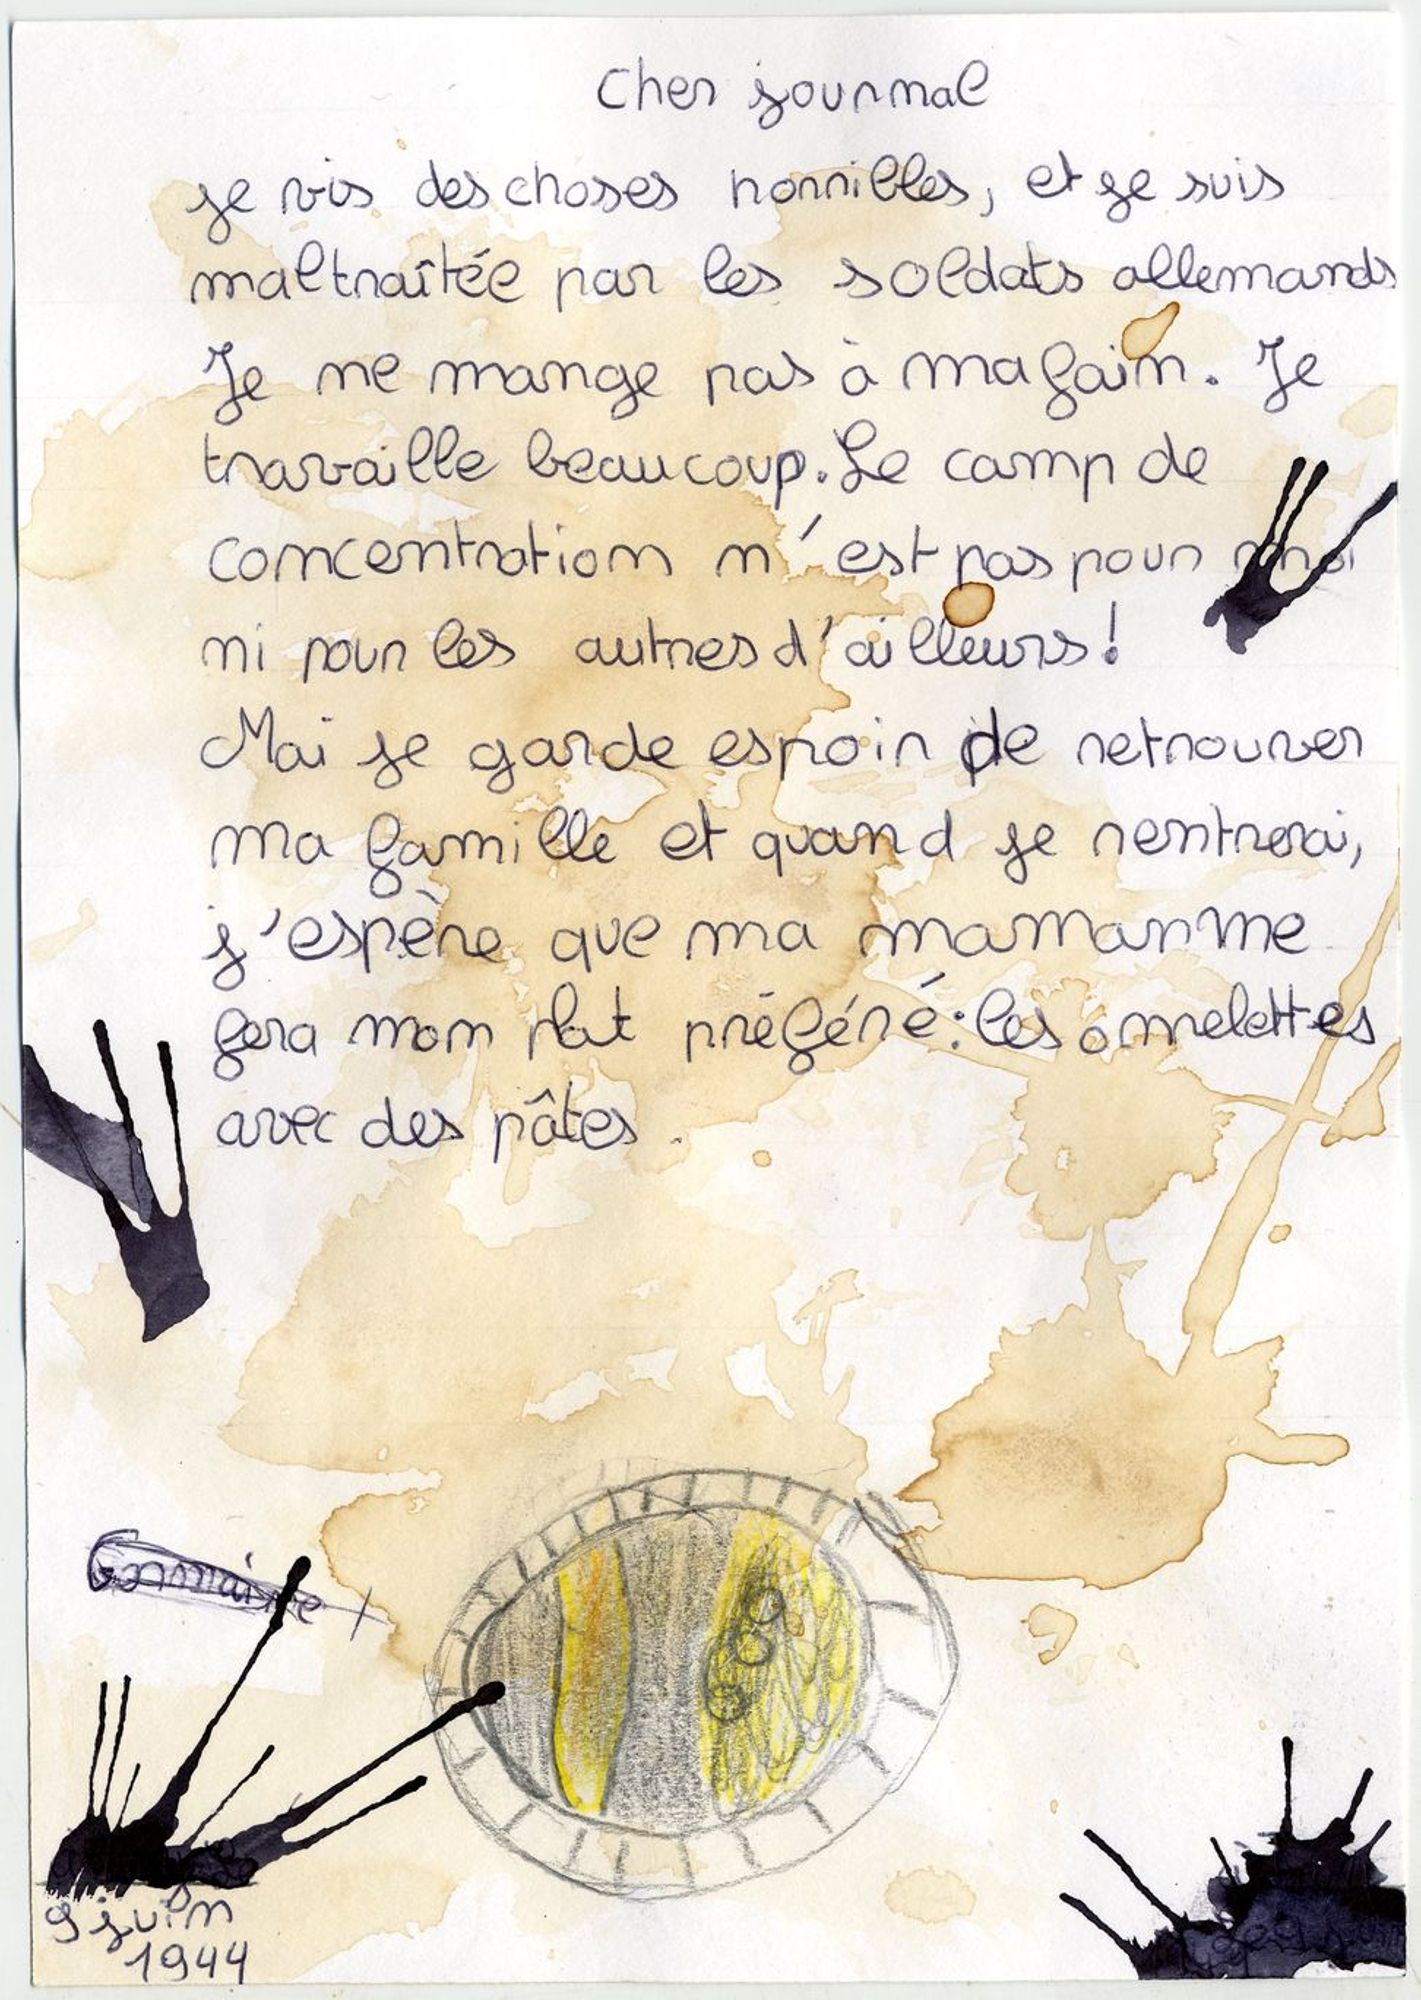 Cher journal
je vis des choses horribles, et je suis
maltraîtée par les soldats allemands
Je ne mange pas à ma faim. Je
travaille beaucoup. Le camp de
concentration n'est pas pour moi
ni pour les autres d'ailleurs!
Mai je garde espoir de retrouver
ma famille et quand je rentrerai,
j'espère que ma maman me
fera mon plat préféré: les omelettes
avec des pâtes.
9 juin
1944